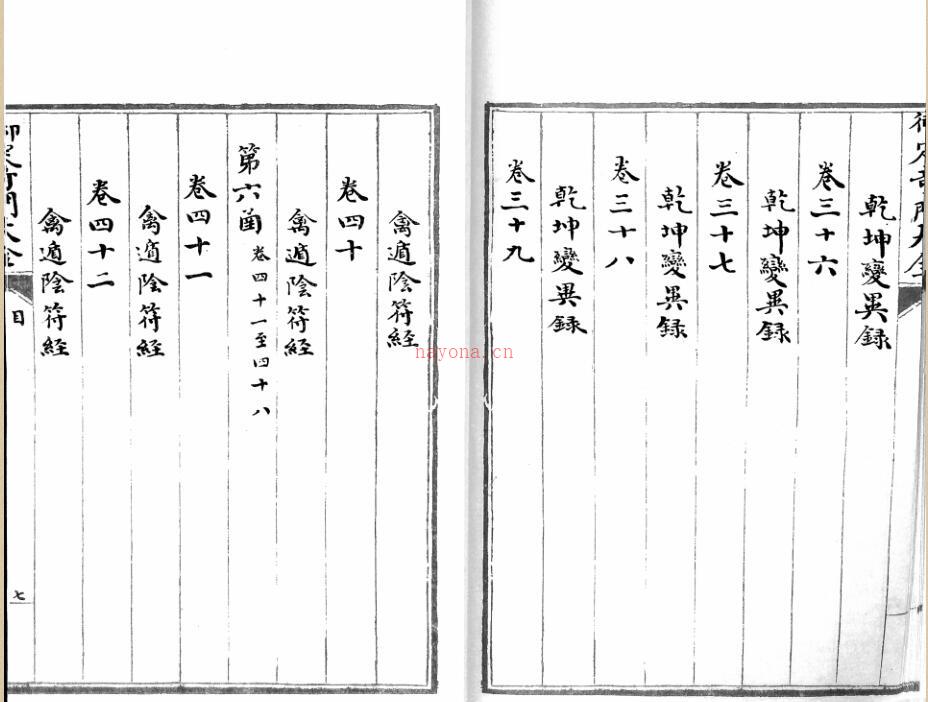 乾坤變異録
卷三十六
乾坤變異録
卷三十七
乾坤變異録
卷三十八
乾坤變異録
卷三十九
禽遁陰符經
卷四十
禽遁陰符經
第六函 卷四十一至四十八
卷四十一
禽遁陰符經
卷四十二
禽遁陰符經
目
七
nayona.cn